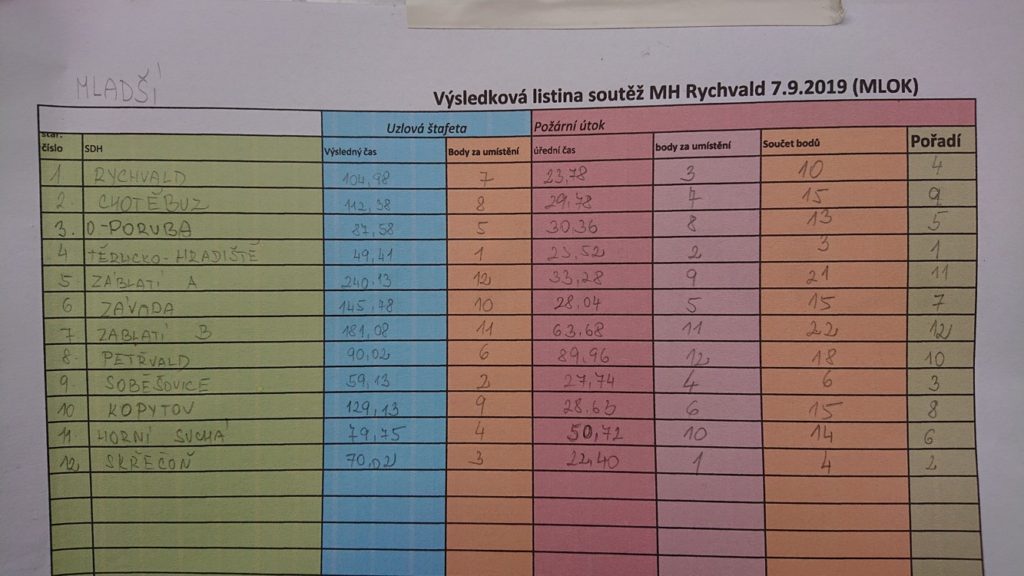 MLADŠÍ
Výsledková listina soutěž MH Rychvald 7.9.2019 (MLOK)
Uzlová štafeta Požární útok
star. číslo SDH Výsledný čas Body za umístění úřední čas body za umístění Součet bodů Pořadí
1 RYCHVALD 104,98 7 23,78 3 10 4
2. CHOTĚBUZ 112,38 8 29,78 7 15 9
3. O-PORUBA 87,58 5 30.36 8 13 5
4 TĚRLICKO-HRADIŠTĚ 49,41 1 23,52 2 3 1
5 ZÁBLATÍ A 240.13 12 33,28 9 21 11
6 ZÁVADA 145,78 10 28.04 5 15 7
7 ZÁBLATÍ B 181,08 11 63,68 11 22 12
8. PETŘVALD 90,02 6 89,96 12 18 10
9. SOBĚŠOVICE 59,13 2 27,74 4 6 3
10 KOPYTOV 129,13 9 28.65 6 15 8
11 HORNÍ SUCHÁ 79,75 4 50,72 10 14 6
12 SKŘEČOŇ 70,02 3 22,40 1 4 2